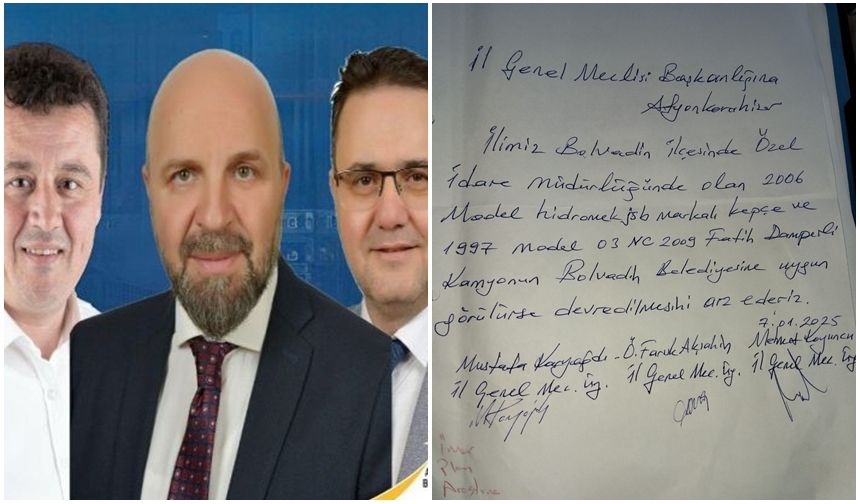 İl Genel Meclisi Başkanlığına
Afyonkarahisar
İlimiz Bolvadin ilçesinde Özel
idare müdürlüğünde olan 2006
Model hidromek jsb markalı kepçe ve
1997 model 03 NC 2009 Fatih Damperli
Kamyonun Bolvadin Belediyesine uygun
görülürse devredilmesini arz ederiz.
7.01.2025
Mustafa - Ö. Faruk Akşahin Mehmet Koyuncu
İl Genel Mec. Üy. İl Genel Mec. Üy. İl Genel Mec. Üy.
İmar
Plan
Araştırma